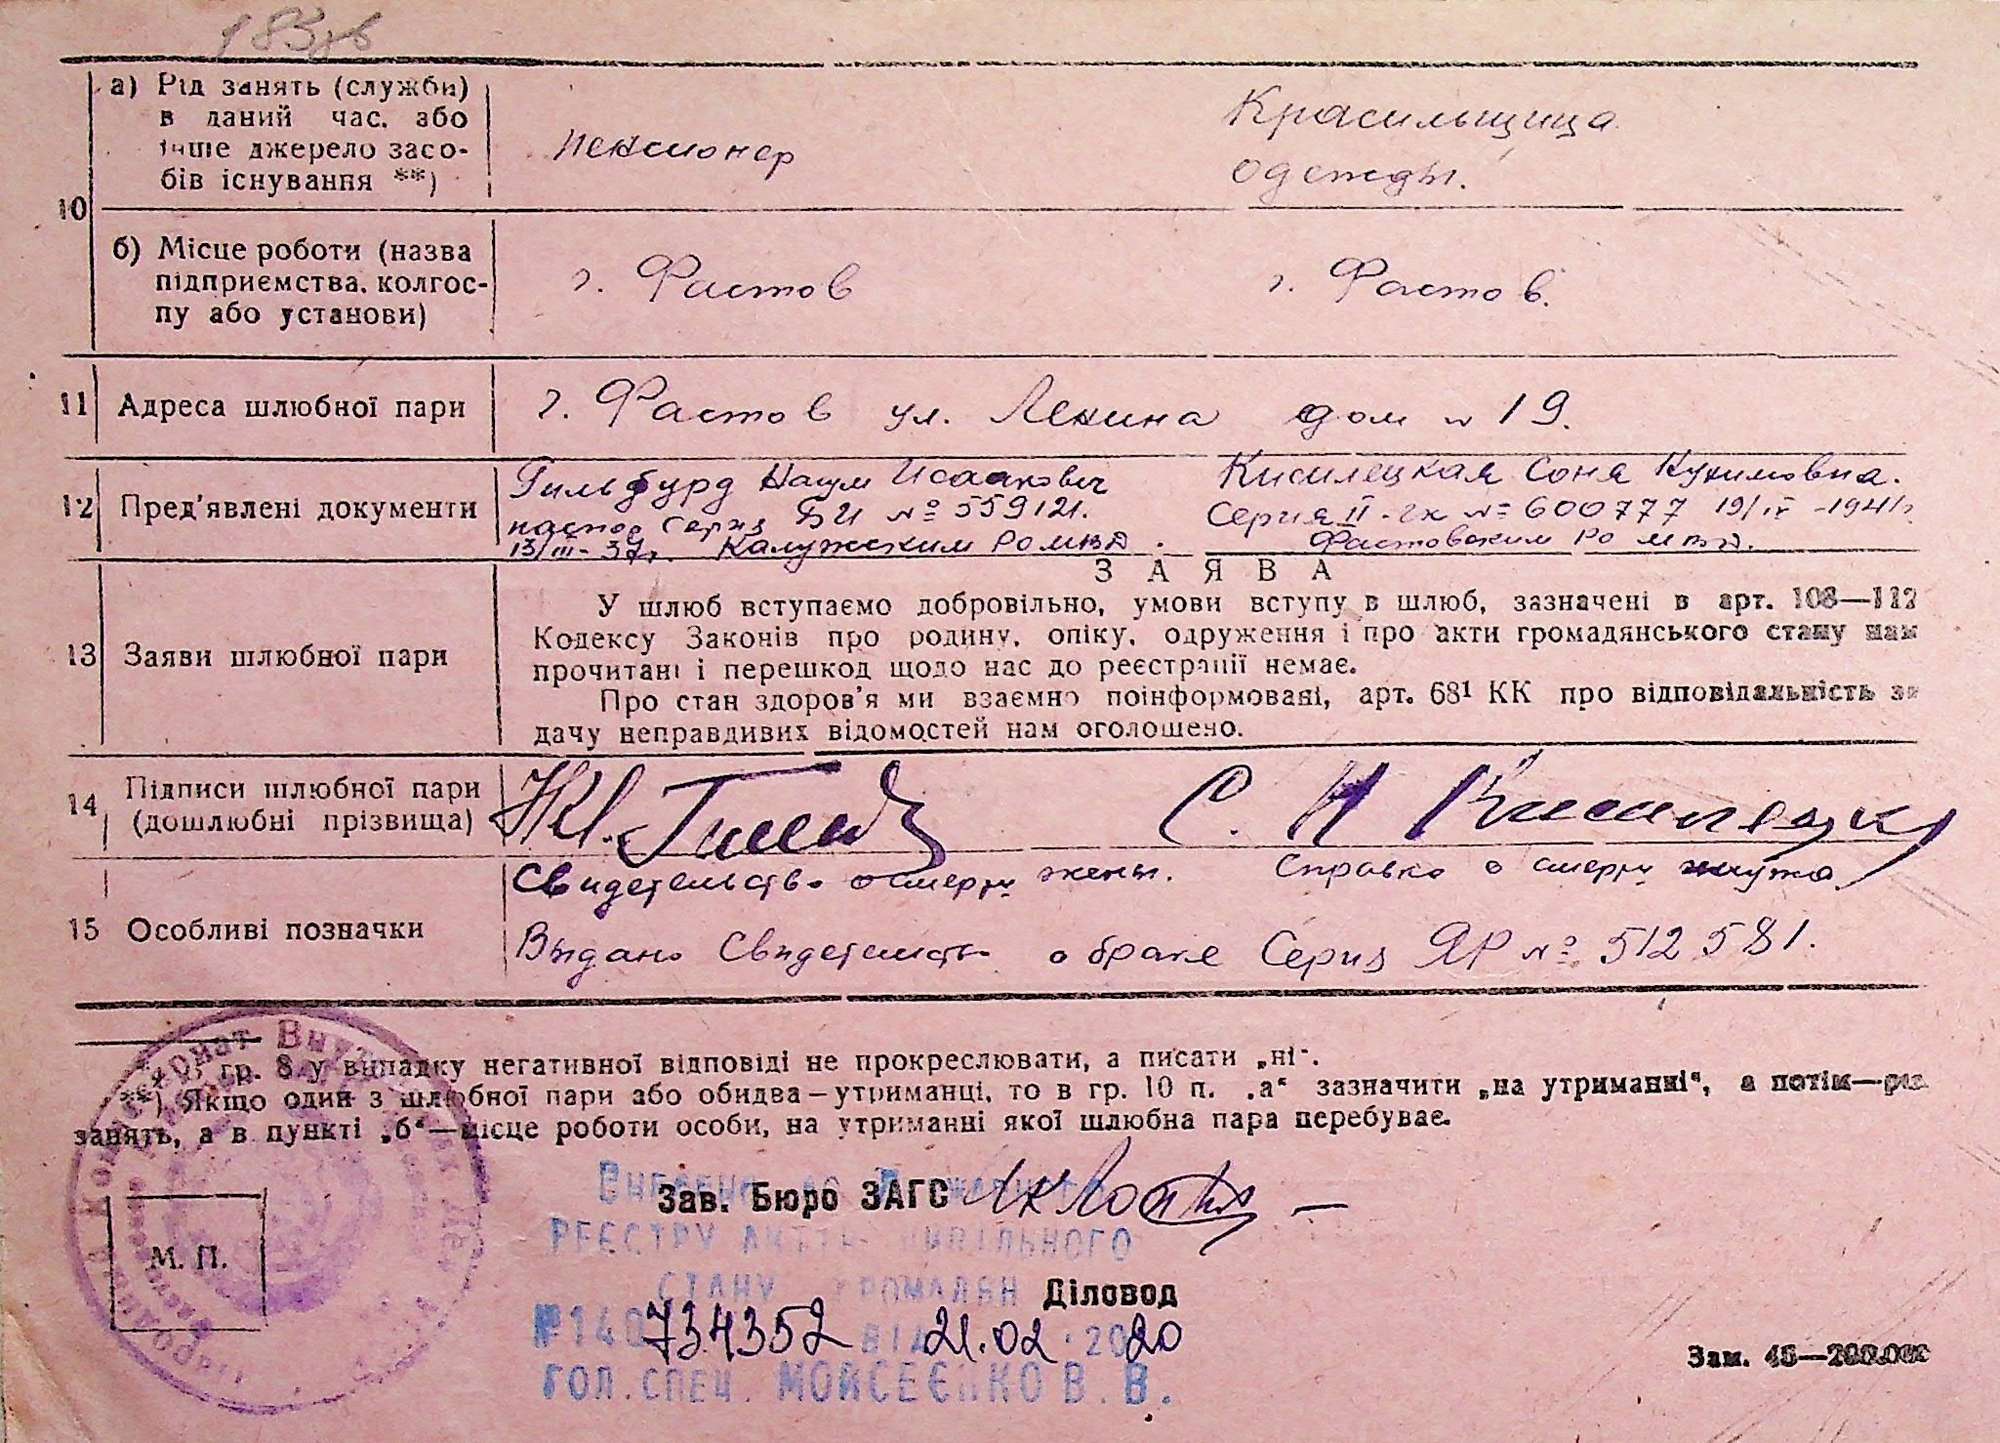 10
а) Рід занять (служби)
в даний час, або
інше джерело засо-
бів існування **)
пенсионер
Красильщица
одежды.
б) Місце роботи (назва
підприємства, колгос-
пу або установи)
г. Фастов
г. Фастов.
11 Адреса шлюбної пари
г. Фастов ул. Ленина дом № 19.
12 Пред'явлені документи
Гильбурд Наум Исаакович
паспорт Серия БИ № 559121.
13/III-37г. Калужским РО МВД.
Кисилецкая Соня Нухимовна.
Серия II-чк № 600777 19/IV-1941г.
Фастовским РО МВД.
13 Заяви шлюбної пари
ЗАЯВА
У шлюб вступаємо добровільно, умови вступу в шлюб, зазначені в арт. 108—112
Кодексу Законів про родину, опіку, одруження і про акти громадянського стану нам
прочитані і перешкод щодо нас до реєстрації немає.
Про стан здоров'я ми взаємно поінформовані, арт. 68¹ КК про відповідальність за
дачу неправдивих відомостей нам оголошено.
14 Підписи шлюбної пари
(дошлюбні прізвища)
С. Н Кисилецк
15 Особливі позначки
Свидетельство о смерти жены. Справка о смерти мужа
Выдано Свидетельство о браке Серия ЯР № 512581.
*) гр. 8 у випадку негативної відповіді не прокреслювати, а писати „ні".
**) Якщо один з шлюбної пари або обидва—утриманці, то в гр. 10 п. „а" зазначити „на утриманні", а потім—рід
занять, а в пункті „б"—місце роботи особи, на утриманні якої шлюбна пара перебуває.
Зав. Бюро ЗАГС
РЕЄСТРУ АКТІВ ЦИВІЛЬНОГО
СТАНУ ГРОМАДЯН
Діловод
М. П.
№140 734352 ВІД 21.02.2020
ГОЛ. СПЕЦ. МОЙСЕЄНКО В. В.
Зам. 45—200.000